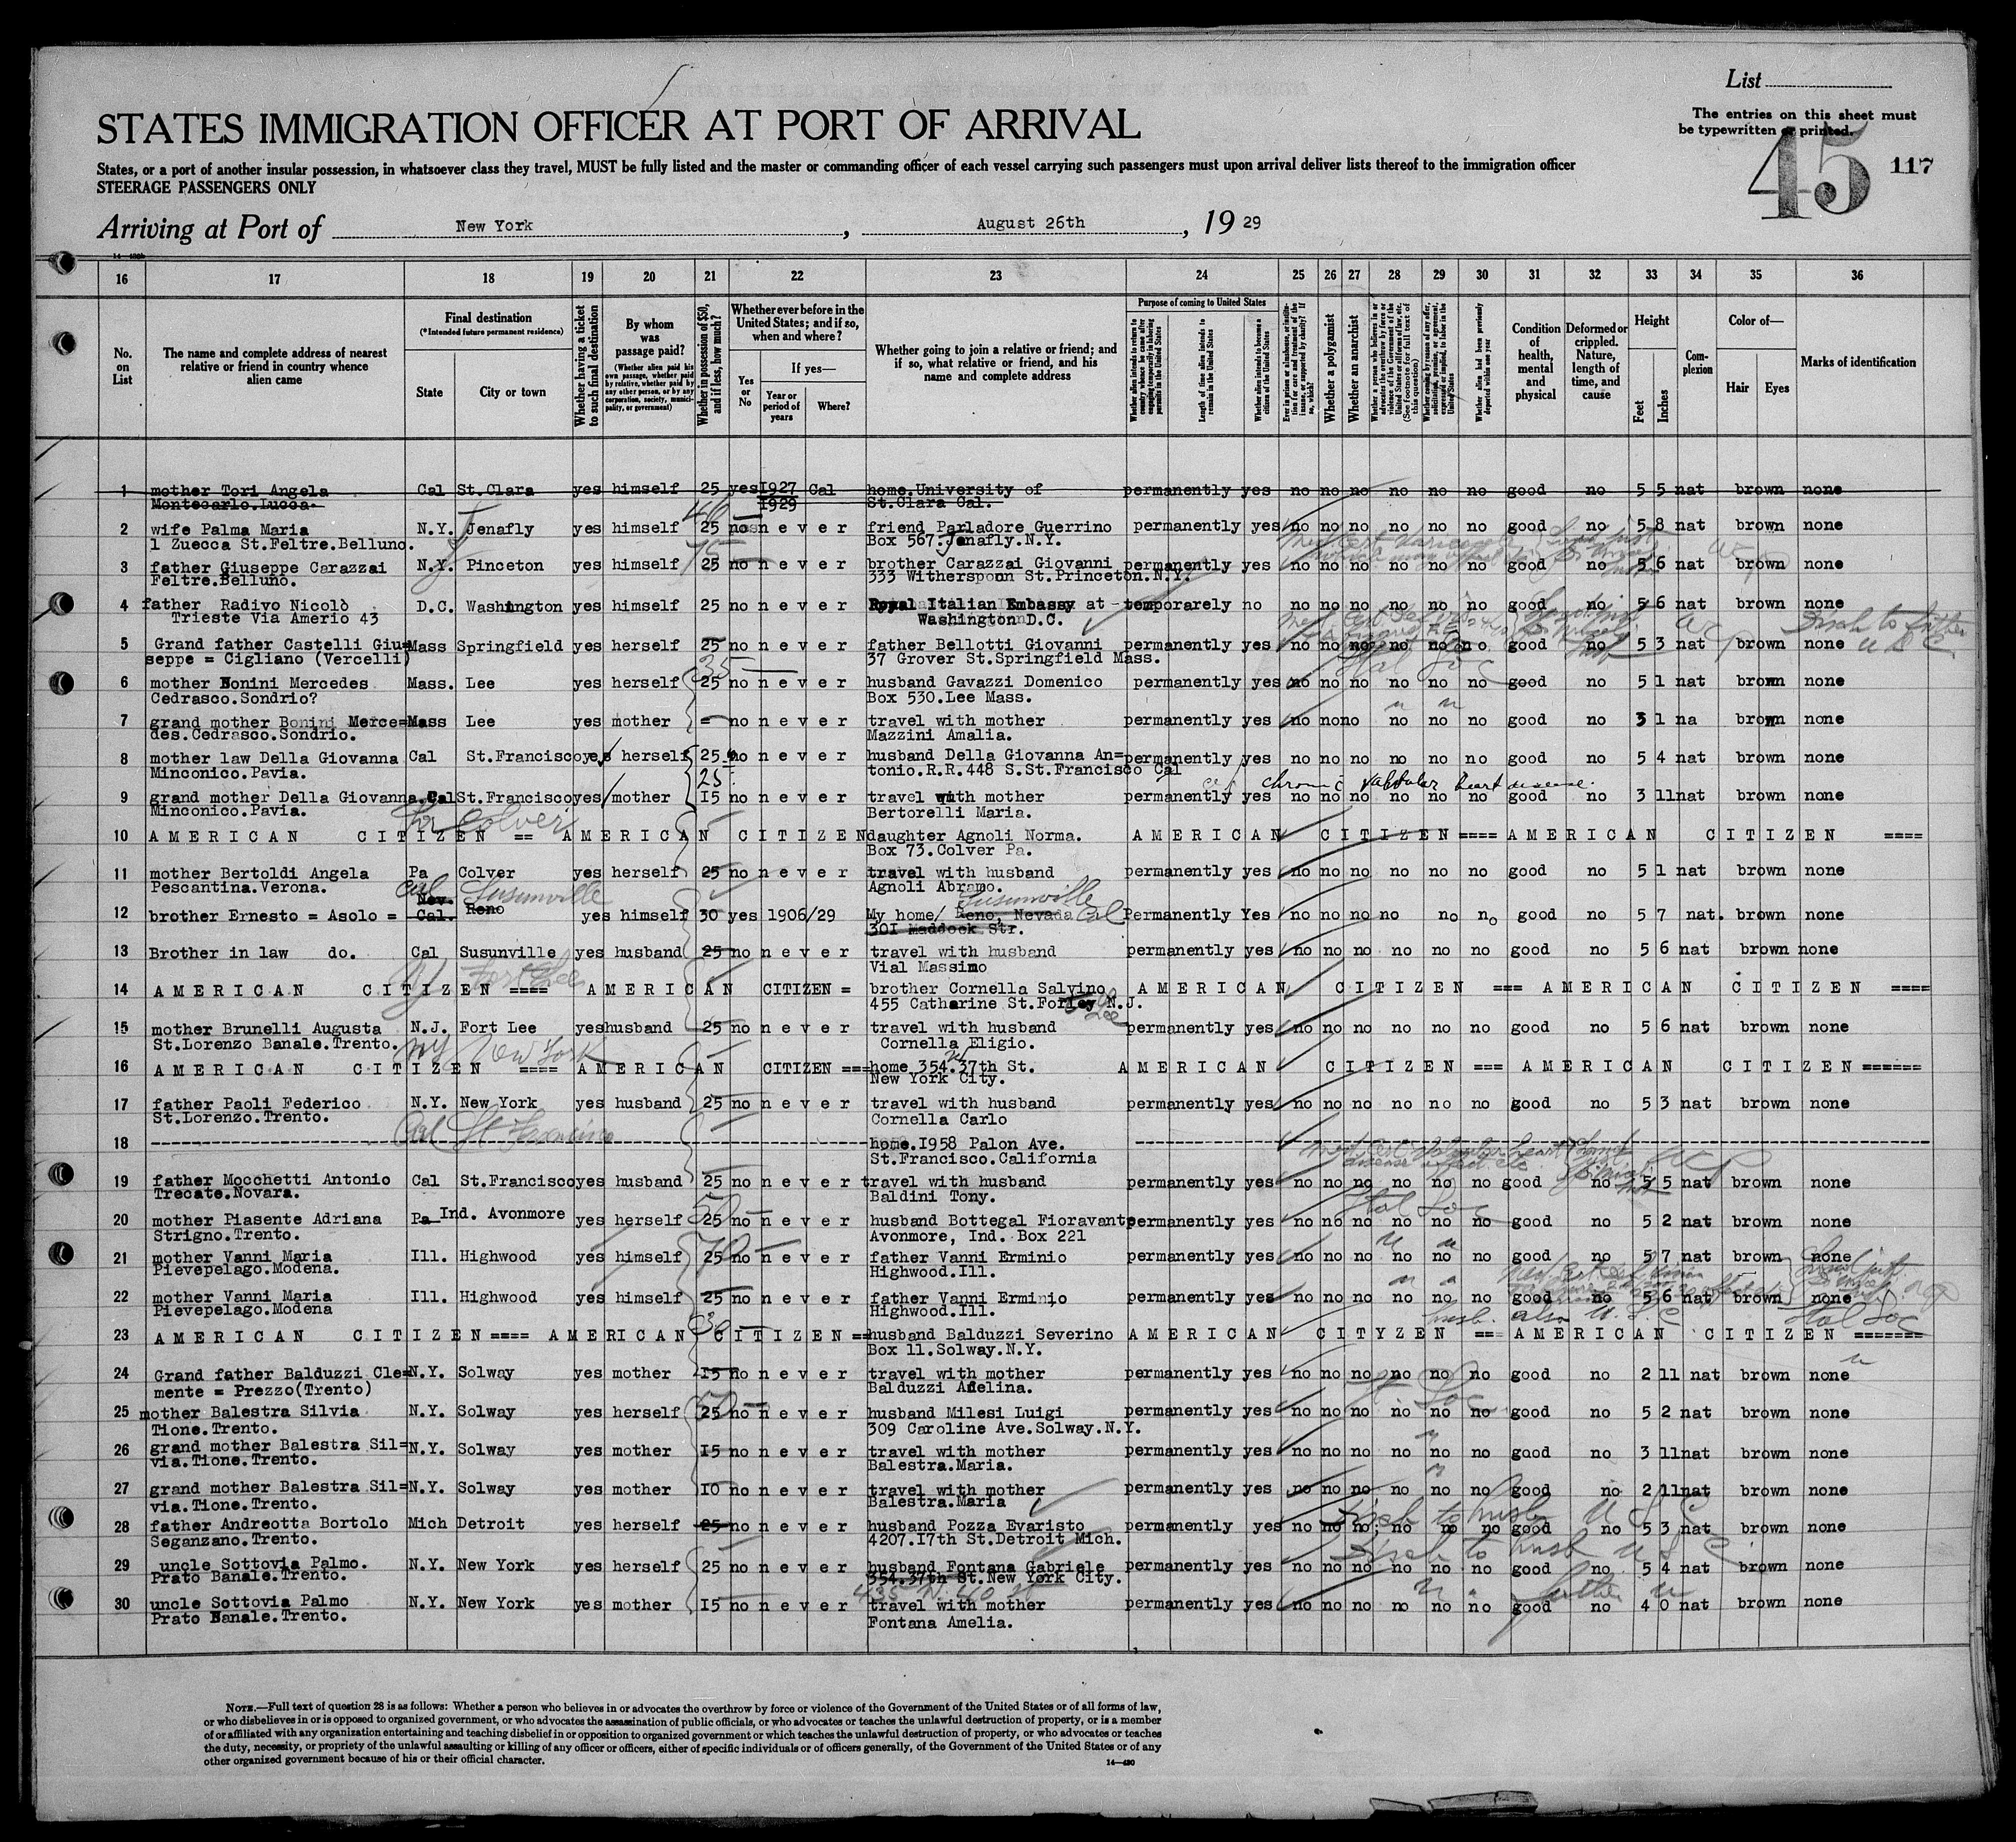 List
The entries on this sheet must
be typewritten or printed.
45 117
STATES IMMIGRATION OFFICER AT PORT OF ARRIVAL
States, or a port of another insular possession, in whatsoever class they travel, MUST be fully listed and the master or commanding officer of each vessel carrying such passengers must upon arrival deliver lists thereof to the immigration officer
STEERAGE PASSENGERS ONLY
Arriving at Port of New York, August 26th, 19 29
16 17 18 19 20 21 22 23 24 25 26 27 28 29 30 31 32 33 34 35 36
No. on List
The name and complete address of nearest relative or friend in country whence alien came
Final destination
(*Intended future permanent residence)
State
City or town
Whether having a ticket to such final destination
By whom was passage paid?
(Whether alien paid his own passage, whether paid by relative, whether paid by any other person, or by any corporation, society, municipality, or government)
Whether in possession of $50, and if less, how much?
Whether ever before in the United States; and if so, when and where?
Yes or No
If yes—
Year or period of years
Where?
Whether going to join a relative or friend; and if so, what relative or friend, and his name and complete address
Purpose of coming to United States
Length of time alien intends to remain in the United States
Whether alien intends to become a citizen of the United States
Whether a polygamist
Whether an anarchist
Condition of health, mental and physical
Deformed or crippled. Nature, length of time, and cause
Height
Feet
Inches
Complexion
Color of—
Hair
Eyes
Marks of identification
1 mother Tori Angela Cal St.Clara yes himself 25 yes 1927 Cal home.University of permanently yes no no no no no no good no 5 5 nat brown none
Montecarlo.Lucca. 1929 St.Clara Cal.
2 wife Palma Maria N.Y. Jenafly yes himself 25 no never friend Parladore Guerrino permanently yes no no no no no no good no 5 8 nat brown none
1 Zuecca St.Feltre.Belluno. Box 567.Jenafly.N.Y.
3 father Giuseppe Carazzai N.Y. Pinceton yes himself 25 no never brother Carazzai Giovanni permanently yes no no no no no no good no 5 6 nat brown none
Feltre.Belluno. 333 Witherspoon St.Princeton.N.Y.
4 father Radivo Nicolò D.C. Washington yes himself 25 no never Royal Italian Embassy at temporarely no no no no no no no good no 5 6 nat brown none
Trieste Via Amerio 43 Washington D.C.
5 Grand father Castelli Giu= Mass Springfield yes herself 25 no never father Bellotti Giovanni permanently yes no no no no no no good no 5 3 nat brown none
seppe = Cigliano (Vercelli) 37 Grover St.Springfield Mass.
35
6 mother Bonini Mercedes Mass. Lee yes herself 25 no never husband Gavazzi Domenico permanently yes no no no no no no good no 5 1 nat brown none
Cedrasco.Sondrio? Box 530.Lee Mass.
7 grand mother Bonini Merce= Mass Lee yes mother = no never travel with mother permanently yes no no no no no no good no 3 1 na brown none
des.Cedrasco.Sondrio. Mazzini Amalia.
8 mother law Della Giovanna Cal St.Francisco yes herself 25 no never husband Della Giovanna An= permanently yes no no no no no no good no 5 4 nat brown none
Minconico.Pavia. tonio.R.R.448 S.St.Francisco Cal
25 chronic valvular heart disease.
9 grand mother Della Giovanna.Cal St.Francisco yes mother 15 no never travel with mother permanently yes no no no no no no good no 3 11 nat brown none
Minconico.Pavia. Bertorelli Maria.
Colver
10 AMERICAN CITIZEN == AMERICAN CITIZEN daughter Agnoli Norma. AMERICAN CITIZEN ==== AMERICAN CITIZEN ====
Box 73.Colver Pa.
11 mother Bertoldi Angela Pa Colver yes herself 25 no never travel with husband permanently yes no no no no no no good no 5 1 nat brown none
Pescantina.Verona. Agnoli Abramo.
Cal Susunville Susunville
Nev.
12 brother Ernesto = Asolo = Cal. Reno yes himself 30 yes 1906/29 My home/ Reno, Nevada Cal Permanently Yes no no no no no no good no 5 7 nat. brown none
301 Maddock Str.
13 Brother in law do. Cal Susunville yes husband 25 no never travel with husband permanently yes no no no no no no good no 5 6 nat brown none
Vial Massimo
NJ Fort Lee
14 AMERICAN CITIZEN ==== AMERICAN CITIZEN = brother Cornella Salvino AMERICAN CITIZEN === AMERICAN CITIZEN ====
455 Catharine St.Forley N.J.
Lee
15 mother Brunelli Augusta N.J. Fort Lee yes husband 25 no never travel with husband permanently yes no no no no no no good no 5 6 nat brown none
St.Lorenzo Banale.Trento. Cornella Eligio.
NY New York
16 AMERICAN CITIZEN ==== AMERICAN CITIZEN === home 354.37th St. AMERICAN CITIZEN === AMERICAN CITIZEN ======
New York City.
17 father Paoli Federico N.Y. New York yes husband 25 no never travel with husband permanently yes no no no no no no good no 5 3 nat brown none
St.Lorenzo.Trento. Cornella Carlo
Cal St Francisco
18 home.1958 Palon Ave.
St.Francisco.California
19 father Mocchetti Antonio Cal St.Francisco yes husband 25 no never travel with husband permanently yes no no no no no no good no 5 5 nat brown none
Trecate.Novara. Baldini Tony.
50 Ital Soc
20 mother Piasente Adriana Pa Ind. Avonmore yes herself 25 no never husband Bottegal Fioravante permanently yes no no no no no no good no 5 2 nat brown none
Strigno.Trento. Avonmore, Ind. Box 221
70
21 mother Vanni Maria Ill. Highwood yes himself 25 no never father Vanni Erminio permanently yes no no no no no no good no 5 7 nat brown none
Pievepelago.Modena. Highwood.Ill.
22 mother Vanni Maria Ill. Highwood yes himself 25 no never father Vanni Erminio permanently yes no no no no no no good no 5 6 nat brown none
Pievepelago.Modena Highwood.Ill.
30 husb. also U.S.C Ital Soc
23 AMERICAN CITIZEN ==== AMERICAN CITIZEN == husband Balduzzi Severino AMERICAN CITYZEN == AMERICAN CITIZEN =======
Box 11.Solway.N.Y.
24 Grand father Balduzzi Cle= N.Y. Solway yes mother 15 no never travel with mother permanently yes no no no no no no good no 2 11 nat brown none
mente = Prezzo(Trento) Balduzzi Adelina.
50 It Soc
25 mother Balestra Silvia N.Y. Solway yes herself 25 no never husband Milesi Luigi permanently yes no no no no no no good no 5 2 nat brown none
Tione.Trento. 309 Caroline Ave.Solway.N.Y.
26 grand mother Balestra Sil= N.Y. Solway yes mother 15 no never travel with mother permanently yes no no no no no no good no 3 11 nat brown none
via.Tione.Trento. Balestra.Maria.
27 grand mother Balestra Sil= N.Y. Solway yes mother 10 no never travel with mother permanently yes no no no no no no good no 2 11 nat brown none
via.Tione.Trento. Balestra.Maria
Disch to husb U S C
28 father Andreotta Bortolo Mich Detroit yes herself 25 no never husband Pozza Evaristo permanently yes no no no no no no good no 5 3 nat brown none
Seganzano.Trento. 4207.17th St.Detroit Mich.
Disch to husb U S C
29 uncle Sottovia Palmo. N.Y. New York yes herself 25 no never husband Fontana Gabriele permanently yes no no no no no no good no 5 4 nat brown none
Prato Banale.Trento. 354.37th St.New York City.
father
30 uncle Sottovia Palmo N.Y. New York yes mother 15 no never travel with mother permanently yes no no no no no no good no 4 0 nat brown none
Prato Banale.Trento. Fontana Amelia.
NOTE.—Full text of question 28 is as follows: Whether a person who believes in or advocates the overthrow by force or violence of the Government of the United States or of all forms of law,
or who disbelieves in or is opposed to organized government, or who advocates the assassination of public officials, or who advocates or teaches the unlawful destruction of property, or is a member
of or affiliated with any organization entertaining and teaching disbelief in or opposition to organized government or which teaches the unlawful destruction of property, or who advocates or teaches
the duty, necessity, or propriety of the unlawful assaulting or killing of any officer or officers, either of specific individuals or of officers generally, of the Government of the United States or of any
other organized government because of his or their official character.
14—430